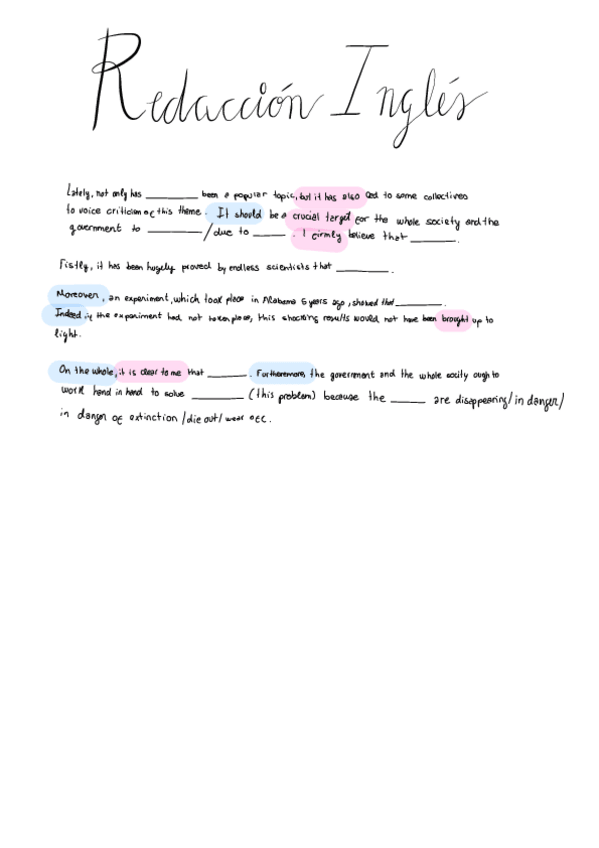 Redacción Inglés
Lately, not only has ________ been a popular topic, but it has also led to some collectives
to voice criticism of this theme. It should be a crucial target for the whole society and the
government to ________ / due to _____ . I firmly believe that _______ .
Fistly, it has been hugely proved by endless scientists that ________ .
Moreover, an experiment, which took place in Alabama 5 years ago, showed that _______ .
Indeed if the experiment had not taken place, this shocking results would not have been brought up to
light.
On the whole, it is clear to me that ______ . Furthermore, the government and the whole socity ough to
work hand in hand to solve ________ (this problem) because the _____ are disappearing / in danger /
in danger of extinction / die out / wear off.